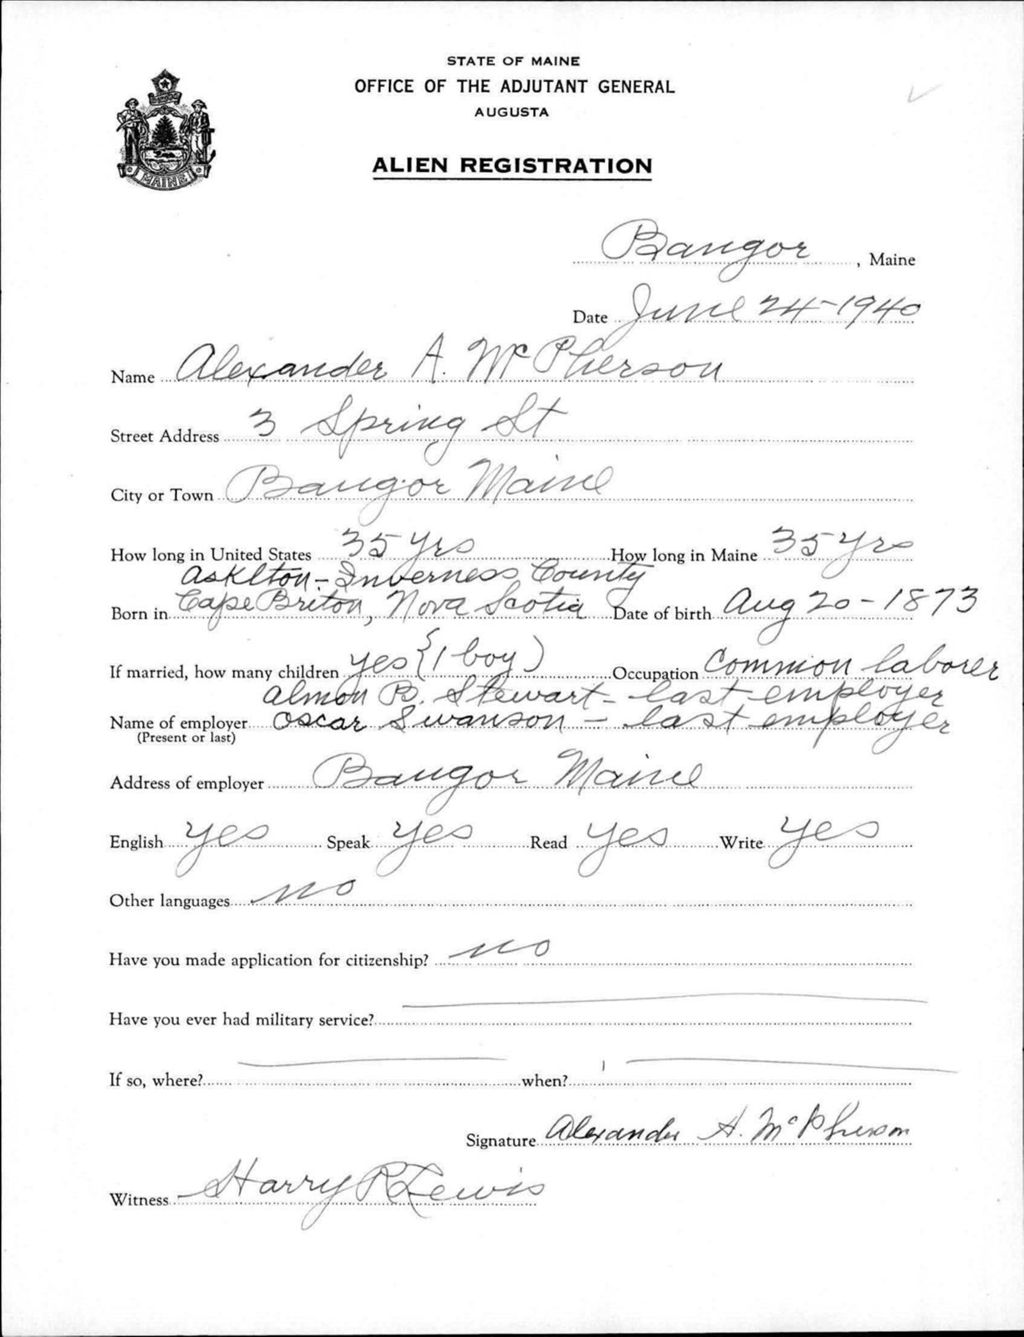 STATE OF MAINE
OFFICE OF THE ADJUTANT GENERAL
AUGUSTA
ALIEN REGISTRATION
MAINE
Bangor, Maine
Date June 24-1940
Name Alexander A. McPherson
Street Address 3 Spring St
City or Town Bangor Maine
How long in United States 35 yrs How long in Maine 35 yrs
Asklton - Inverness County
Born in Cape Briton, Nova Scotia Date of birth Aug 20 - 1873
If married, how many children yes (1 boy) Occupation Common laborer
Almon B. Stewart - last employer
Name of employer Oscar Swanson - last employer
(Present or last)
Address of employer Bangor Maine
English yes Speak yes Read yes Write yes
Other languages no
Have you made application for citizenship? no
Have you ever had military service?
If so, where? when?
Signature Alexander A. McPherson
Witness Harry R Lewis